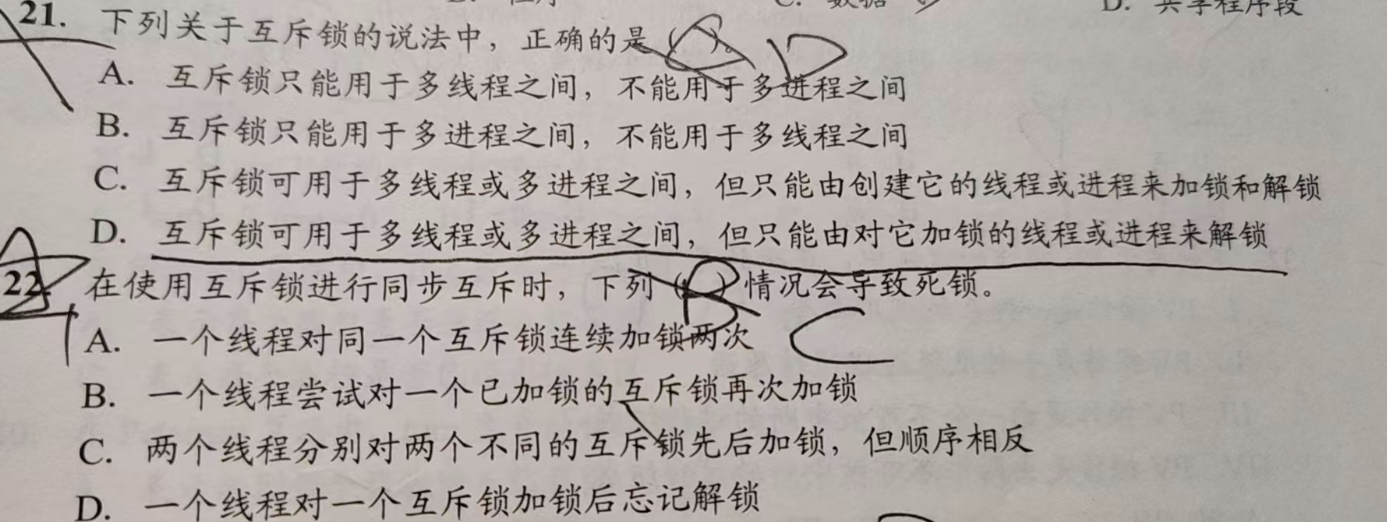 C. 数据
D. 共享程序段
21. 下列关于互斥锁的说法中，正确的是（ ）。 D
A. 互斥锁只能用于多线程之间，不能用于多进程之间
B. 互斥锁只能用于多进程之间，不能用于多线程之间
C. 互斥锁可用于多线程或多进程之间，但只能由创建它的线程或进程来加锁和解锁
D. 互斥锁可用于多线程或多进程之间，但只能由对它加锁的线程或进程来解锁
22. 在使用互斥锁进行同步互斥时，下列（B）情况会导致死锁。
A. 一个线程对同一个互斥锁连续加锁两次 C
B. 一个线程尝试对一个已加锁的互斥锁再次加锁
C. 两个线程分别对两个不同的互斥锁先后加锁，但顺序相反
D. 一个线程对一个互斥锁加锁后忘记解锁